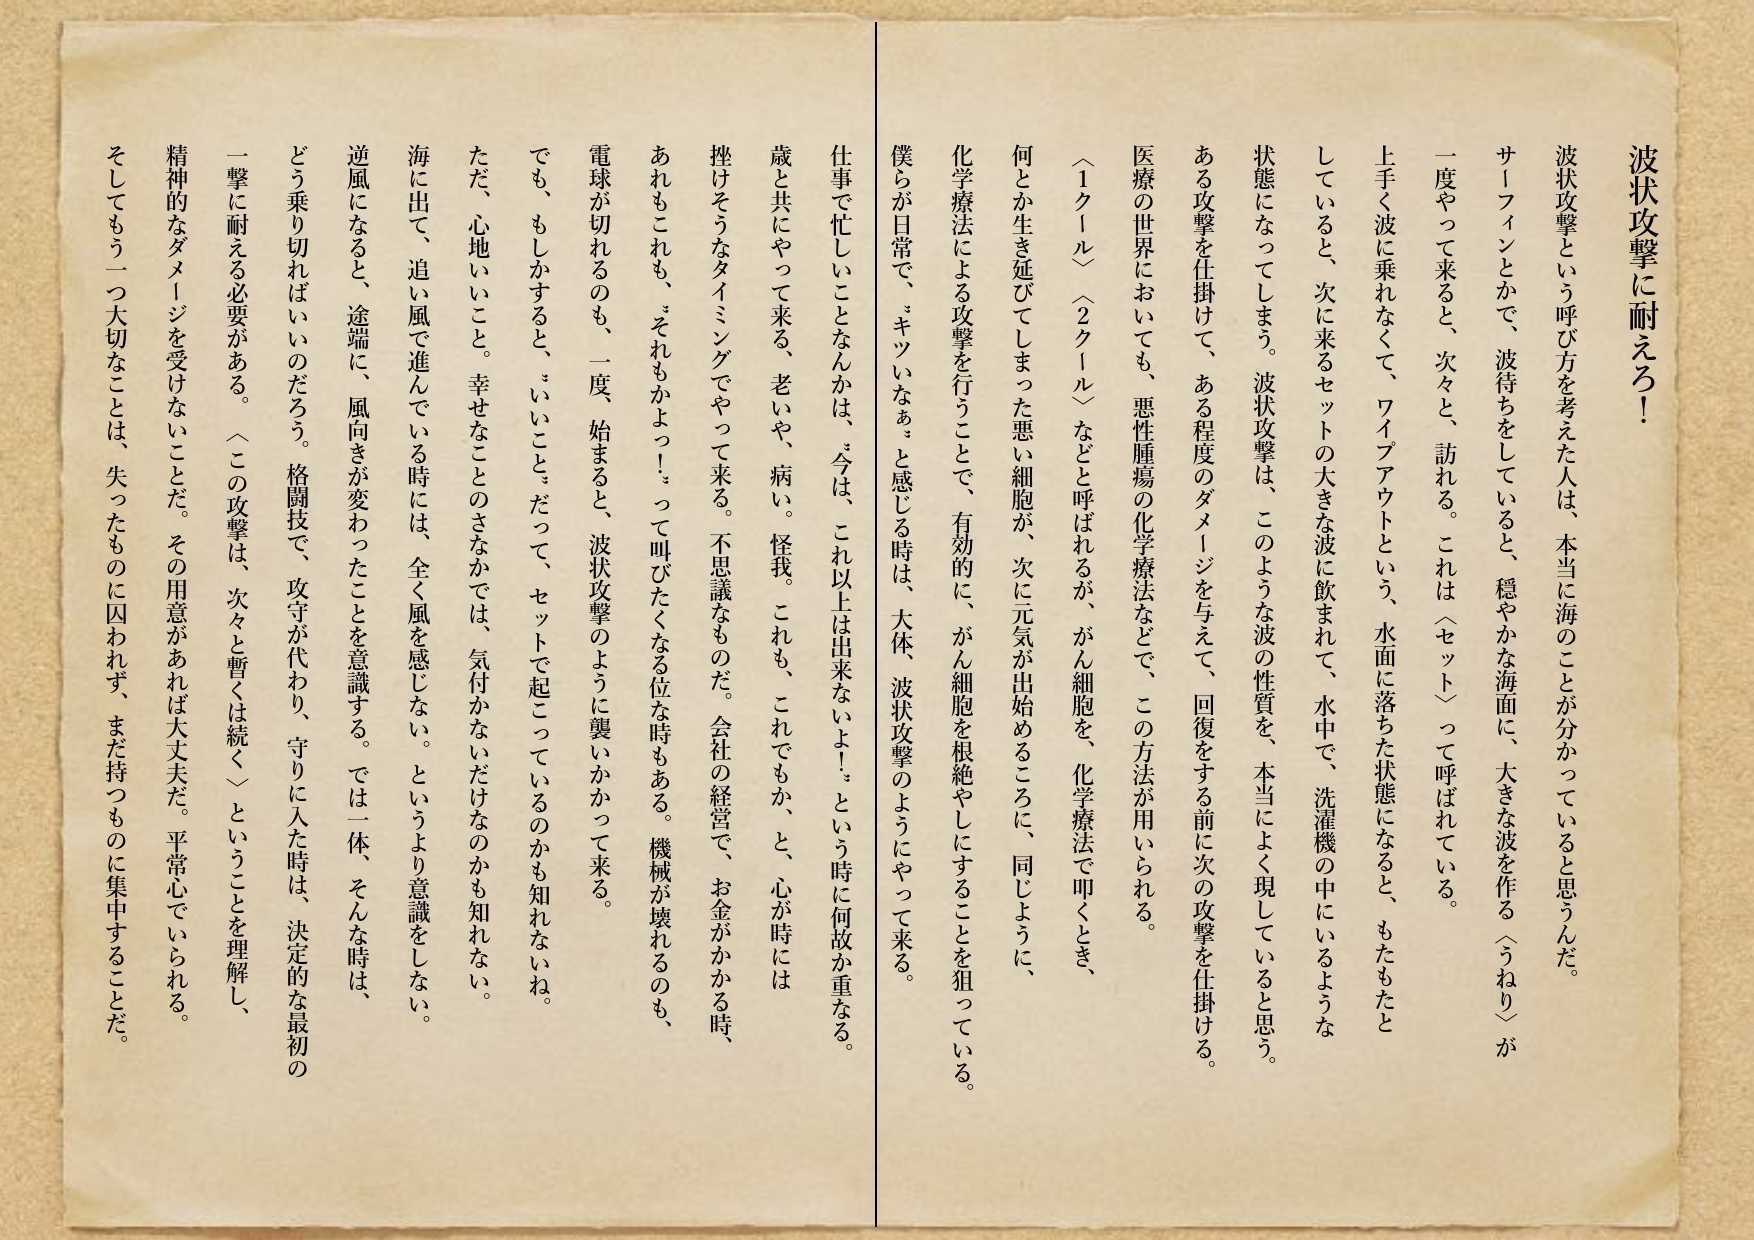 波状攻撃に耐えろ！
波状攻撃という呼び方を考えた人は、本当に海のことが分かっていると思うんだ。
サーフィンとかで、波待ちをしていると、穏やかな海面に、大きな波を作る〈うねり〉が
一度やって来ると、次々と、訪れる。これは〈セット〉って呼ばれている。
上手く波に乗れなくて、ワイプアウトという、水面に落ちた状態になると、もたもたと
していると、次に来るセットの大きな波に飲まれて、水中で、洗濯機の中にいるような
状態になってしまう。波状攻撃は、このような波の性質を、本当によく現していると思う。
ある攻撃を仕掛けて、ある程度のダメージを与えて、回復をする前に次の攻撃を仕掛ける。
医療の世界においても、悪性腫瘍の化学療法などで、この方法が用いられる。
〈1クール〉〈2クール〉などと呼ばれるが、がん細胞を、化学療法で叩くとき、
何とか生き延びてしまった悪い細胞が、次に元気が出始めるころに、同じように、
化学療法による攻撃を行うことで、有効的に、がん細胞を根絶やしにすることを狙っている。
僕らが日常で、〝キツいなぁ〟と感じる時は、大体、波状攻撃のようにやって来る。
仕事で忙しいことなんかは、〝今は、これ以上は出来ないよ！〟という時に何故か重なる。
歳と共にやって来る、老いや、病い。怪我。これも、これでもか、と、心が時には
挫けそうなタイミングでやって来る。不思議なものだ。会社の経営で、お金がかかる時、
あれもこれも、〝それもかよっ！〟って叫びたくなる位な時もある。機械が壊れるのも、
電球が切れるのも、一度、始まると、波状攻撃のように襲いかかって来る。
でも、もしかすると、〝いいこと〟だって、セットで起こっているのかも知れないね。
ただ、心地いいこと。幸せなことのさなかでは、気付かないだけなのかも知れない。
海に出て、追い風で進んでいる時には、全く風を感じない。というより意識をしない。
逆風になると、途端に、風向きが変わったことを意識する。では一体、そんな時は、
どう乗り切ればいいのだろう。格闘技で、攻守が代わり、守りに入た時は、決定的な最初の
一撃に耐える必要がある。〈この攻撃は、次々と暫くは続く〉ということを理解し、
精神的なダメージを受けないことだ。その用意があれば大丈夫だ。平常心でいられる。
そしてもう一つ大切なことは、失ったものに囚われず、まだ持つものに集中することだ。